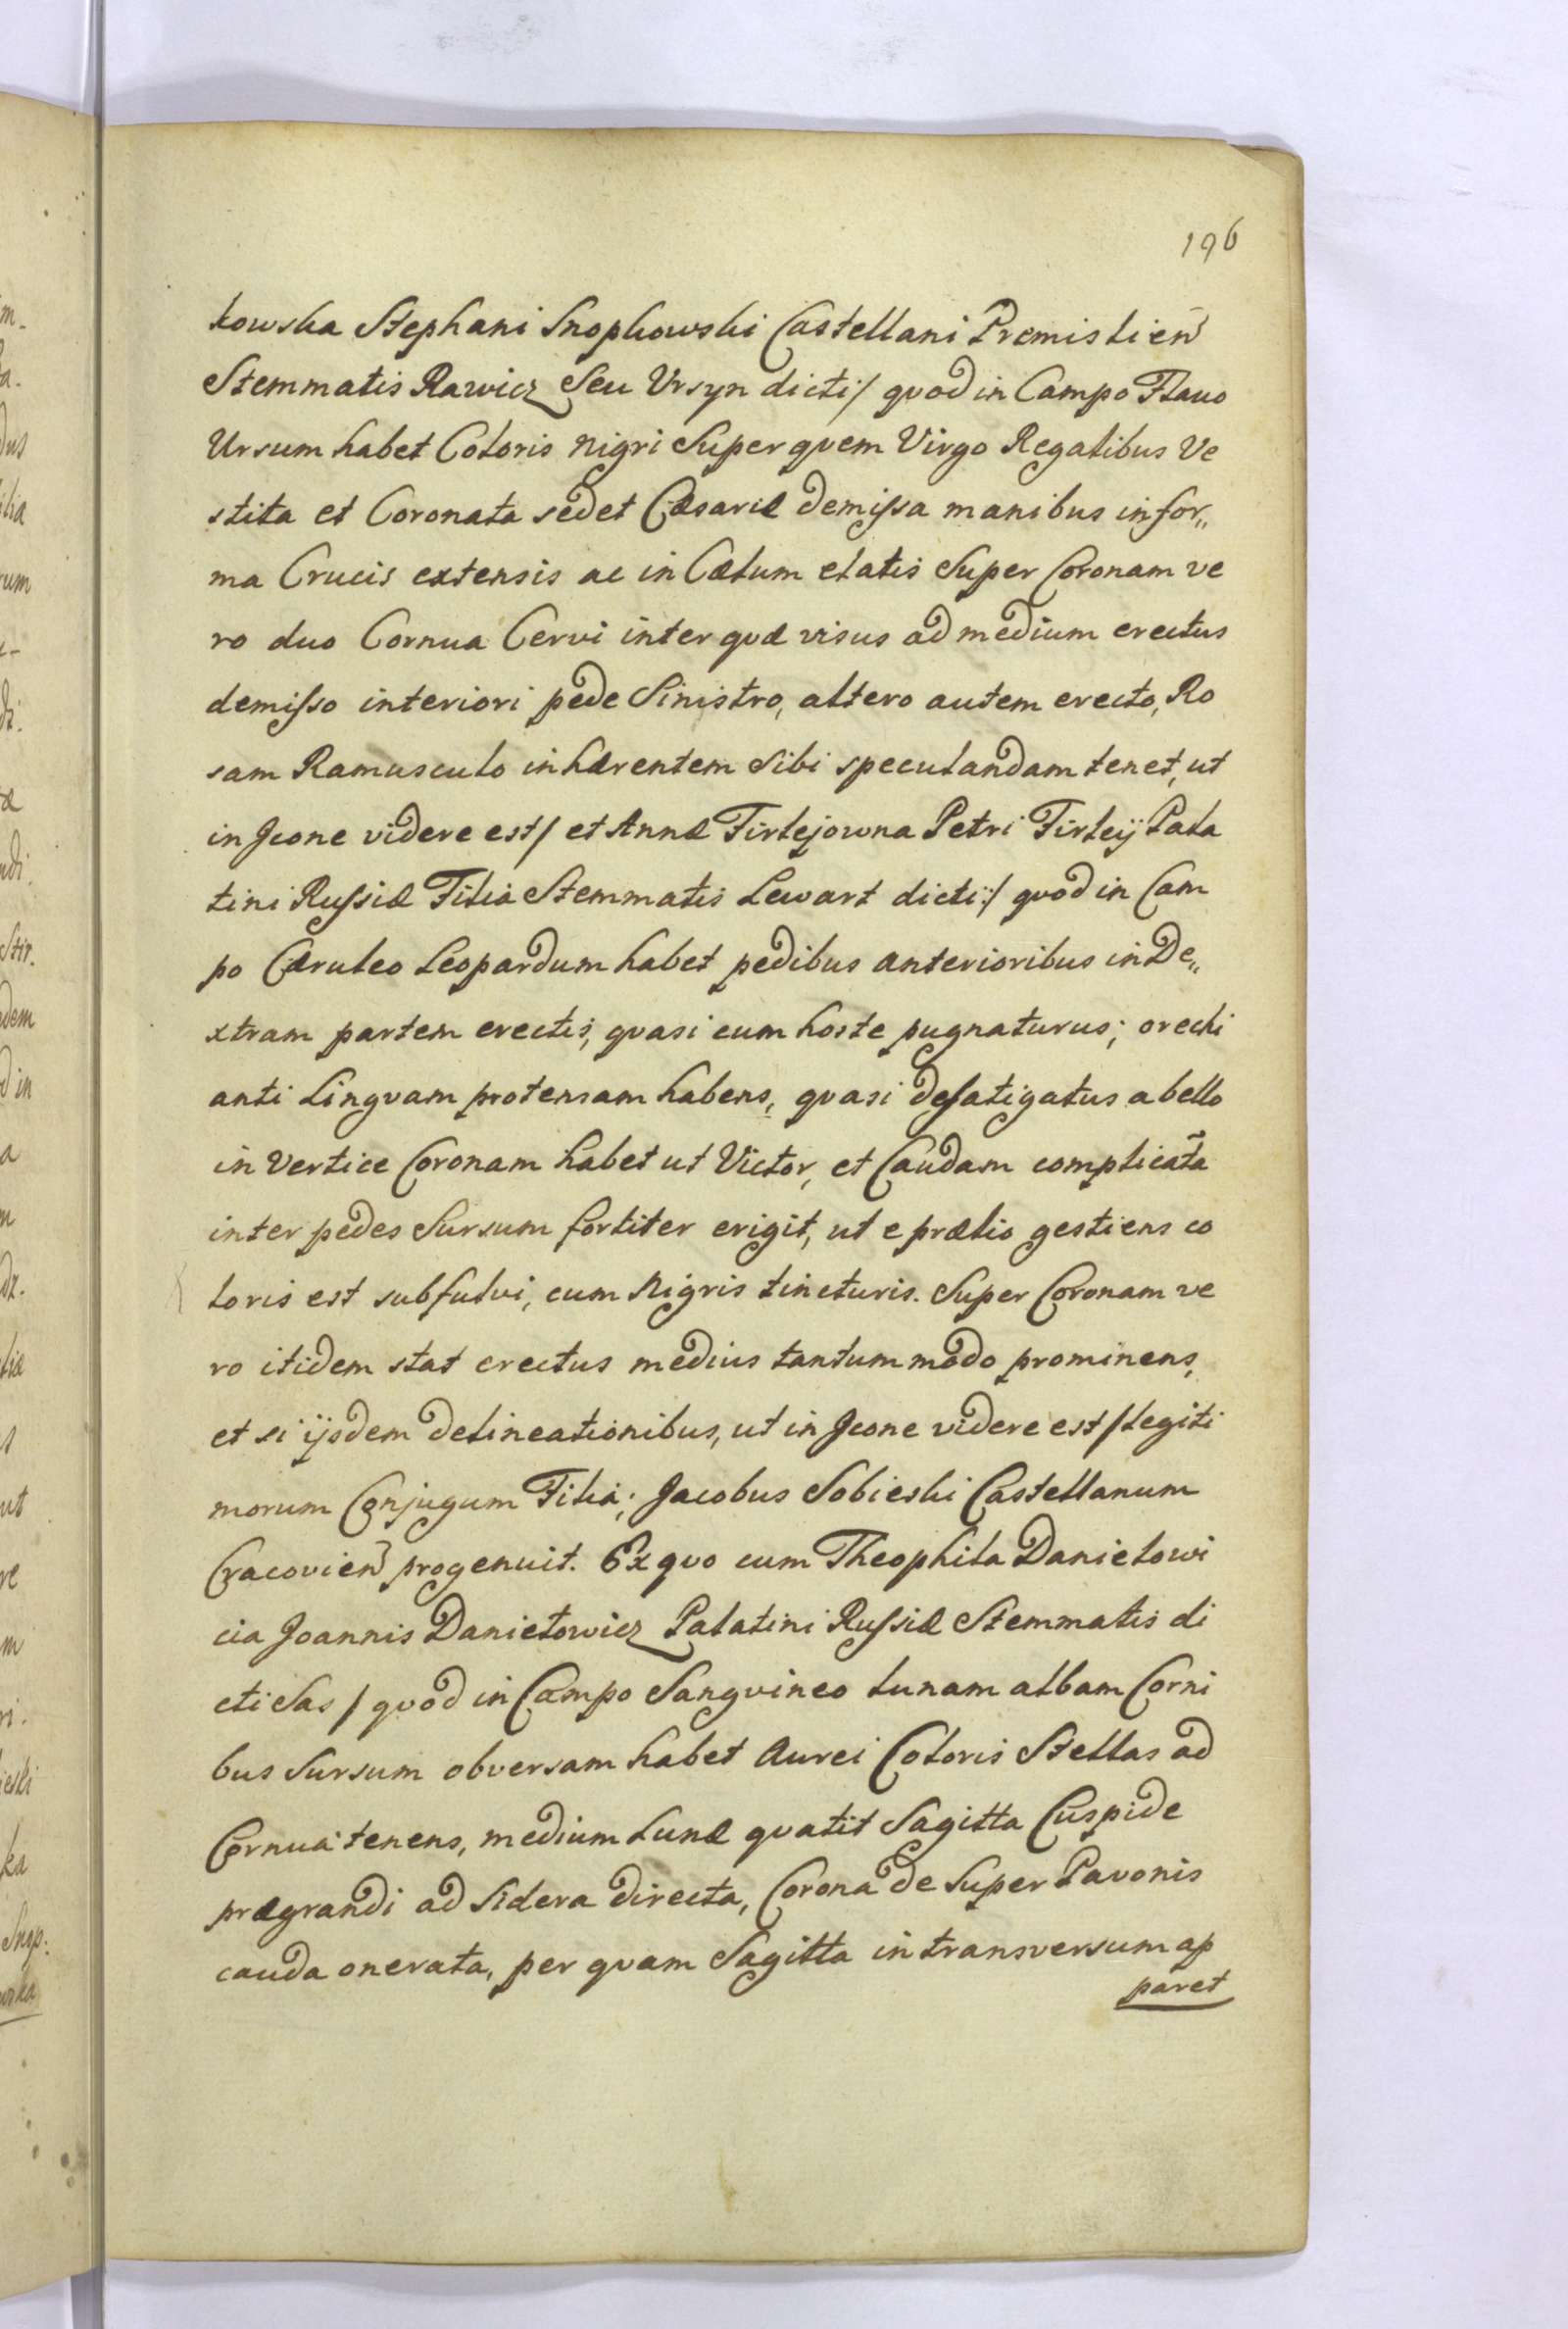 196
kowska Stephani Snopkowski Castellani Premislien̄
Stemmatis Rawicz Seu Ursyn dicti/ quod in Campo Flavo
Ursum habet Coloris nigri Super quem Virgo Regalibus Ve
stita et Coronata sedet Cæsarie demissa manibus in for„
ma Crucis extensis ac in Cælum elatis Super Coronam ve
ro duo Cornua Cervi inter quæ visus ad medium erectus
demisso interiori pede Sinistro, altero autem erecto, Ro
sam Ramusculo inhærentem Sibi speculandam tenet, ut
in Jcone videre est/ et Annæ Firlejowna Petri Firleij Pala
tini Russiæ Filia Stemmatis Lewart dicti:/ quod in Cam
po Cæruleo Leopardum habet pedibus anterioribus in De„
xtram partem erectis, quasi cum hoste pugnaturus; ore hi
anti Linguam protensam habens, quasi defatigatus a bello
in Vertice Coronam habet ut Victor, et Caudam complicatã
inter pedes Sursum fortiter erigit, ut e prælio gestiens co
loris est subfulvi, cum Nigris tincturis. Super Coronam ve
ro itidem stat erectus medius tantummodo prominens,
et si ijsdem delineationibus, ut in Jcone videre est/ legiti
morum Conjugum Filia; Jacobus Sobieski Castellanum
Cracovien̄ progenuit. Ex quo cum Theophila Danielowi
cia Joannis Danielowicz Palatini Russiæ Stemmatis di
cti Sas / quod in Campo Sanguineo Lunam albam Corni
bus Sursum obversam habet Aurei Coloris Stellas ad
Cornua tenens, medium Lunæ quatit Sagitta Cuspide
prægrandi ad Sidera directa, Corona de Super Pavonis
cauda onerata, per quam Sagitta in transversum ap
paret